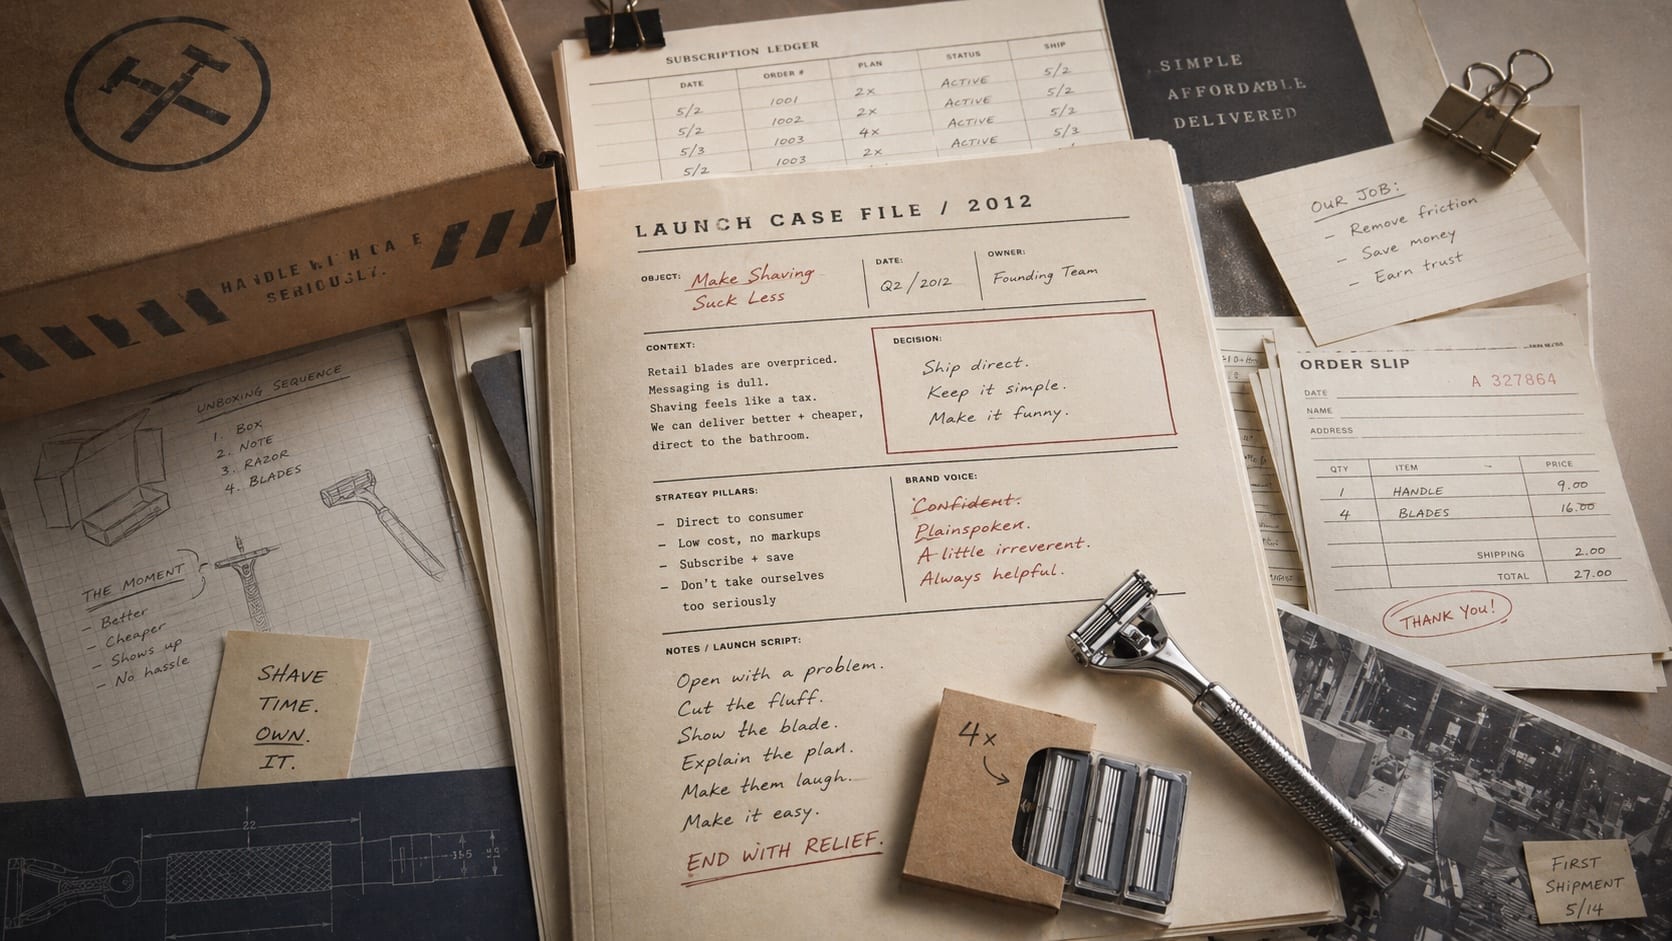 SUBSCRIPTION LEDGER
DATE ORDER # PLAN STATUS SHIP
5/2 1001 2x ACTIVE 5/2
5/2 1002 2x ACTIVE 5/2
5/3 1003 4x ACTIVE 5/2
5/2 1003 2x ACTIVE 5/3
SIMPLE
AFFORDABLE
DELIVERED
OUR JOB:
– Remove friction
– Save money
– Earn trust
HANDLE WITH CA E
SERIOUSLY.
LAUNCH CASE FILE / 2012
OBJECT: Make Shaving
Suck Less
DATE:
Q2/2012
OWNER:
Founding Team
CONTEXT:
Retail blades are overpriced.
Messaging is dull.
Shaving feels like a tax.
We can deliver better + cheaper,
direct to the bathroom.
DECISION:
Ship direct.
Keep it simple.
Make it funny.
STRATEGY PILLARS:
– Direct to consumer
– Low cost, no markups
– Subscribe + save
– Don't take ourselves
too seriously
BRAND VOICE:
Confident.
Plainspoken.
A little irreverent.
Always helpful.
NOTES / LAUNCH SCRIPT:
Open with a problem.
Cut the fluff.
Show the blade.
Explain the plan.
Make them laugh.
Make it easy.
END WITH RELIEF.
4x
UNBOXING SEQUENCE
1. BOX
2. NOTE
3. RAZOR
4. BLADES
THE MOMENT
– Better
– Cheaper
– Shows up
– No hassle
SHAVE
TIME.
OWN.
IT.
22
ORDER SLIP
A 327864
DATE
NAME
ADDRESS
QTY ITEM PRICE
1 HANDLE 9.00
4 BLADES 16.00
SHIPPING 2.00
TOTAL 27.00
THANK YOU!
FIRST
SHIPMENT
5/14